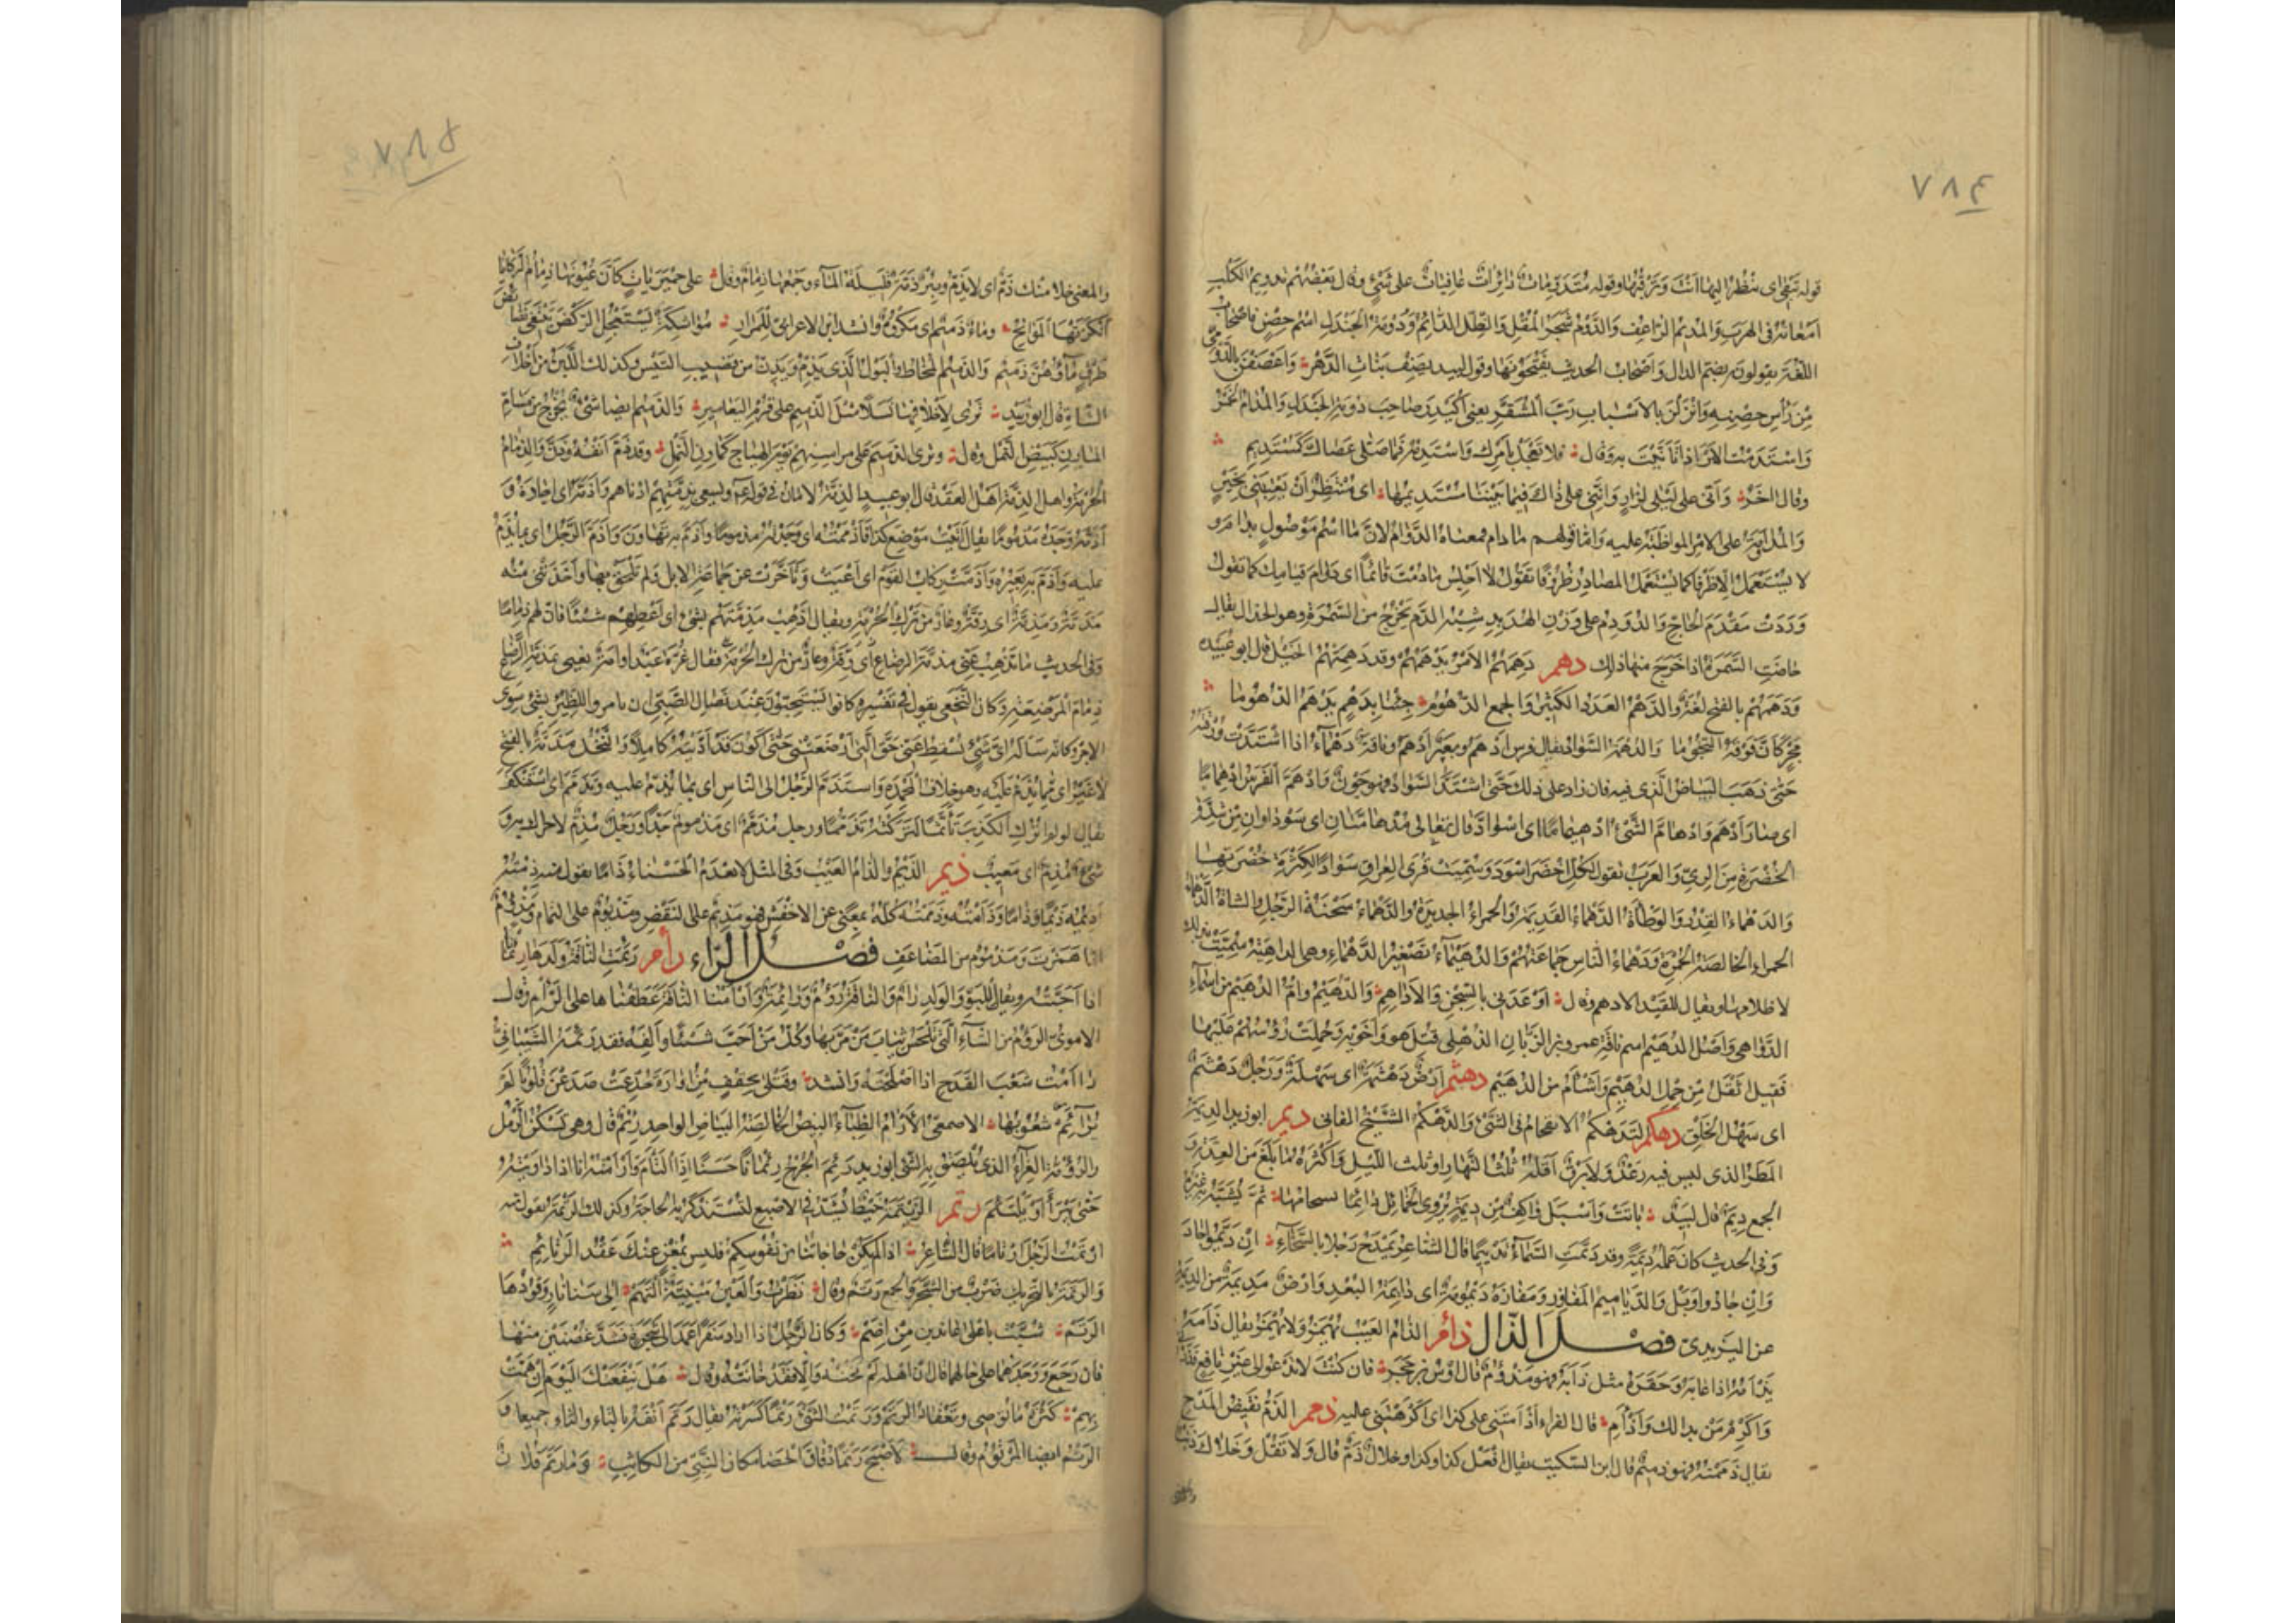 ٧٨٤
قوله تبقى اى ننظر اليها انت وترقبها وقوله متقدمات دائرات عافيات على شئ وقال بعضهم تدويم الكلب
امعانه فى الهرب والمديم الراعف والدوم شجر المقل والظل الدائم ودومة الجندل اسم حصن فاصحاب
اللغة يقولون بضم الدال واصحاب الحديث يفتحونها وقول لبيد يصف بنات الدهر واعصفن بالدومى
من رأس حصنه وانزلن بالاسباب رب المشقر يعنى اكيدر صاحب دومة الجندل والمدام الخمر
واستدمت الامر اذا تأنيت به وقال فلا تعجل بامرك واستدمه فما صلى عصاك كمستديم
وقال اخر وانى على ليلى لزار واننى على ذاك فيما بيننا مستديمها اى منتظر ان تعتبنى بخير
والمداومة على الامر المواظبة عليه واما قولهم ما دام فمعناه الدوام لان ما اسم موصول بدام و
لا يستعمل الا ظرفا كما يستعمل المصادر ظروفا تقول لا اجلس ما دمت قائما اى دوام قيامك كما تقول
وردت مقدم الحاج والدودم على وزن الهدبد شبه الدم يخرج من السمرة وهو الحذال يقال
حاضت السمرة اذا خرج منها ذلك دهم دهمهم الامر يدهمهم وقد دهمتهم الخيل قال ابو عبيدة
ودهمهم بالفتح لغة والدهم العدد الكثير والجمع الدهوم جئنا بدهم يدهم الدهوما
مجر كأن فوقه النجوما والدهمة السواد يقال فرس ادهم وبعير ادهم وناقة دهماء اذا اشتدت ورقته
حتى ذهب البياض الذى فيه فان زاد على ذلك حتى اشتد السواد فهو جون وادهم الفرس ادهماما
اى صار ادهم وادهام الشئ ادهيماما اى اسواد قال تعالى مدهامتان اى سوداوان من شدة
الخضرة من الرى والعرب تقول لكل اخضر اسود وسميت قرى العراق سوادا لكثرة خضرتها
والدهماء القدر والوطأة الدهماء القديمة والحمراء الجديدة والدهماء سحنة الرجل والشاة الدهماء
الحمراء الخالصة الحمرة ودهماء الناس جماعتهم والدهيماء تصغير الدهماء وهى الداهية سميت بذلك
لاظلامها ويقال للقيد الادهم وقال اوعدنى بالسجن والاداهم والدهيم وام الدهيم من اسماء
الدواهى واصل الدهيم اسم ناقة عمرو بن الزبان الذهلى قتل هو واخوته وحملت رؤسهم عليها
فقيل اثقل من حمل الدهيم واشأم من الدهيم دهثم ارض دهثمة اى سهلة ورجل دهثم
اى سهل الخلق دهكم التدهكم الانقحام فى الشئ والدهكم الشيخ الفانى ديم ابو زيد الديمة
المطر الذى ليس فيه رعد ولا برق اقله ثلث النهار او ثلث الليل واكثره ما بلغ من العدة و
الجمع ديم قال لبيد باتت واسبل واكف من ديمة يروى الخمائل دائما تسجامها ثم يشبه به غيره
وفى الحديث كان عمله ديمة وقد ديمت السماء تدييما قال الشاعر يمدح رجلا بالسخاء ان ديموا جاد
وان جادوا وبل والدياميم المفاوز ومفازة ديمومة اى دائمة البعد وارض مديمة من الديمة
عن اليزيدى فصل الذال ذأم الذام العيب يهمز ولا يهمز يقال ذأمه
يذأمه اذا عابه وحقره مثل ذأبه فهو مذؤم قال اوس بن حجر فان كنت لا تدعو الى غير نافع فذرنى
واكرم من بدا لك واذأم قال الفراء اذأمتنى على كذا اى اكرهتنى عليه ذمم الذم نقيض المدح
يقال ذممته فهو ذميم قال ابن السكيت يقال افعل كذا وكذا وخلاك ذم قال ولا تقل وخلاك ذنب
والمعنى
٧٨٥
والمعنى خلا منك ذم اى لا تذم وبئر ذمة قليلة الماء وجمعها ذمام وقال على حميريات كأن عيونها ذمام الركايا
انكزتها المواتح وماء ذميم اى مكروه وانشد ابن الاعرابى للمرار مواشكة تستعجل الركض تبتغى نضائض
طرق ماؤهن ذميم والذميم المخاط والبول الذى يذم ويذن من قضيب التيس وكذلك اللبن من اخلاف
الشاة قال ابو زبيد ترى لاخلافها من خلفها نسلا مثل الذميم على قزم اليعامير والذميم ايضا شئ يخرج من مسام
المارن كبيض النمل وقال وترى الذميم على مراسنهم يوم الهياج كمازن النمل وقد ذم انفه وذن والذمام
الحرمة واهل الذمة اهل العقد قال ابو عبيد الذمة الامان فى قوله عم ويسعى بذمتهم ادناهم واذمه اى اجاره و
اذمه وجده مذموما يقال اتيت موضع كذا فاذممته اى وجدته مذموما واذم به تهاون واذم الرجل اى بما يذم
عليه واذم به بعيره واذمت ركاب القوم اى اعيت وتأخرت عن جماعة الابل ولم تلحق بها واخذتنى منه
مذمة ومذمة اى رقة وعار من ترك الحرمة ويقال اذهب مذمتهم بشئ اى اعطهم شيئا فان لهم ذماما
وفى الحديث ما يذهب عنى مذمة الرضاع اى رقة وعار من ترك الحرمة فقال غرة عبد او امة يعنى بمذمة الرضاع
ذمام المرضعة وكان النخعى يقول فى تفسيره كانوا يستحبون عند فصال الصبى ان يأمروا للظئر بشئ سوى
الاجر وكأنه سأله اى شئ يسقط عنى حق التى ارضعتنى حتى اكون قد اديته كاملا والبخل مذمة بالفتح
لا غير اى مما يذم عليه وهو خلاف المحمدة واستذم الرجل الى الناس اى بما يذم عليه وتذمم اى استنكف
يقال لو لم اترك الكذب تأثما لتركته تذمما ورجل مذمم اى مذموم جدا ورجل مذم لا حراك به و
شئ مذم اى معيب ذيم الذيم والذام العيب وفى المثل لا تعدم الحسناء ذاما تقول منه ذمته
اذيمه ذيما وذاما وذأمته وذممته كله بمعنى عن الاخفش فهو مذيم على النقص ومذيوم على التمام ومذؤم
اذا همزت ومذموم من المضاعف فصل الراء رأم رئمت الناقة ولدها رئمانا
اذا احبته ويقال للبو والولد رأم والناقة رؤم ورائمة وارأمنا الناقة عطفناها على الرأم وقال
الاموى الرؤم من الشاء التى تلحس ثياب من مر بها وكل من احب شيئا والفه فقد رئمه الشيبانى
رأمت شعب القدح اذا اصلحته وانشد وقتلى بحقف من اوارة جدعت صدعن قلوبا لم
ترأم شعوبها الاصمعى الارآم الظباء البيض الخالصة البياض الواحد رئم قال وهى تسكن الرمل
والرؤمة الغراء الذى يلصق به الشئ ابو زيد رئم الجرح رئمانا حسنا اذا التأم وارأمته انا اذا داويته
حتى يبرأ او يلتئم رتم الرتيمة خيط يشد فى الاصبع لتستذكر به الحاجة وكذلك الرتمة تقول منه
ارتمت الرجل ارتاما قال الشاعر اذا لم تكن حاجاتنا فى نفوسكم فليس بمغن عنك عقد الرتائم
والرتمة بالتحريك ضرب من الشجر والجمع رتم وقال نظرت والعين مبينة التهم الى سنا نار وقودها
الرتم شبت باعلى عاندين من اضم وكان الرجل اذا اراد سفرا عمد الى شجرة فشد غصنين منها
فان رجع ووجدهما على حالهما قال ان اهله لم تخنه والا فقد خانته وقال هل ينفعنك اليوم ان همت
بهم كثرة ما توصى وتعقاد الرتم ورتمت الشئ رتما كسرته يقال رتم انفه بالتاء والثاء جميعا و
الرتم ايضا المرتوم وقال لاصبح رتما دقاق الحصا مكان النبى من الكاثب وما رتم فلان